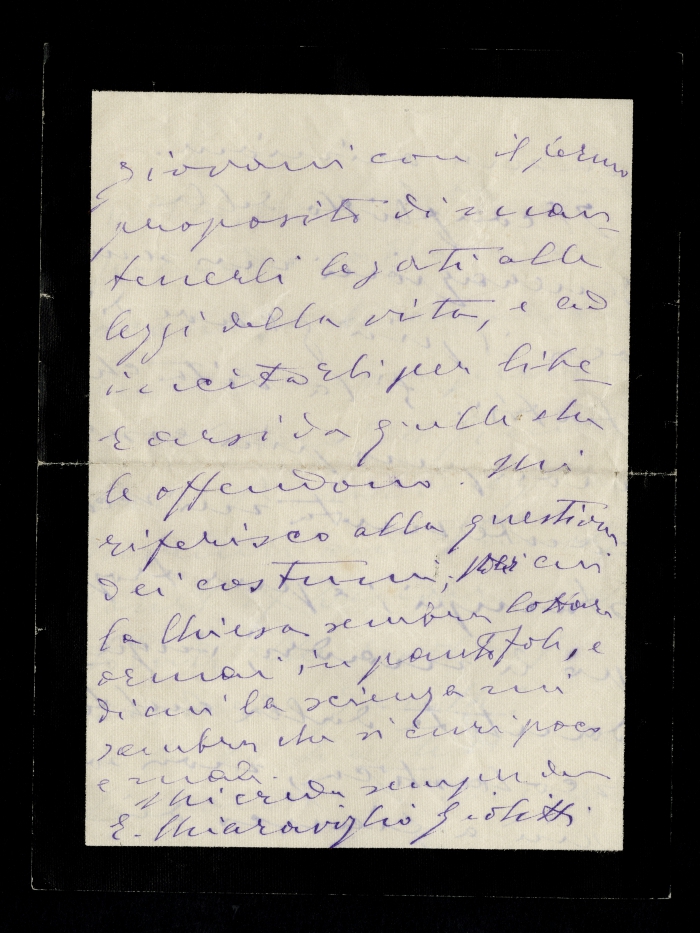 giovani con il fermo
proposito di man-
tenerli legati alle
leggi della vita, e ad
incitarli per libe-
rarsi da quelle che
le offendono. Mi
riferisco alla questione
dei costumi, per cui
la Chiesa sembra lottare
ormai in pantofole, e
di cui la scienza mi
sembra che si curi poco
e male.
Mi creda sempre
E. Chiaraviglio Giolitti